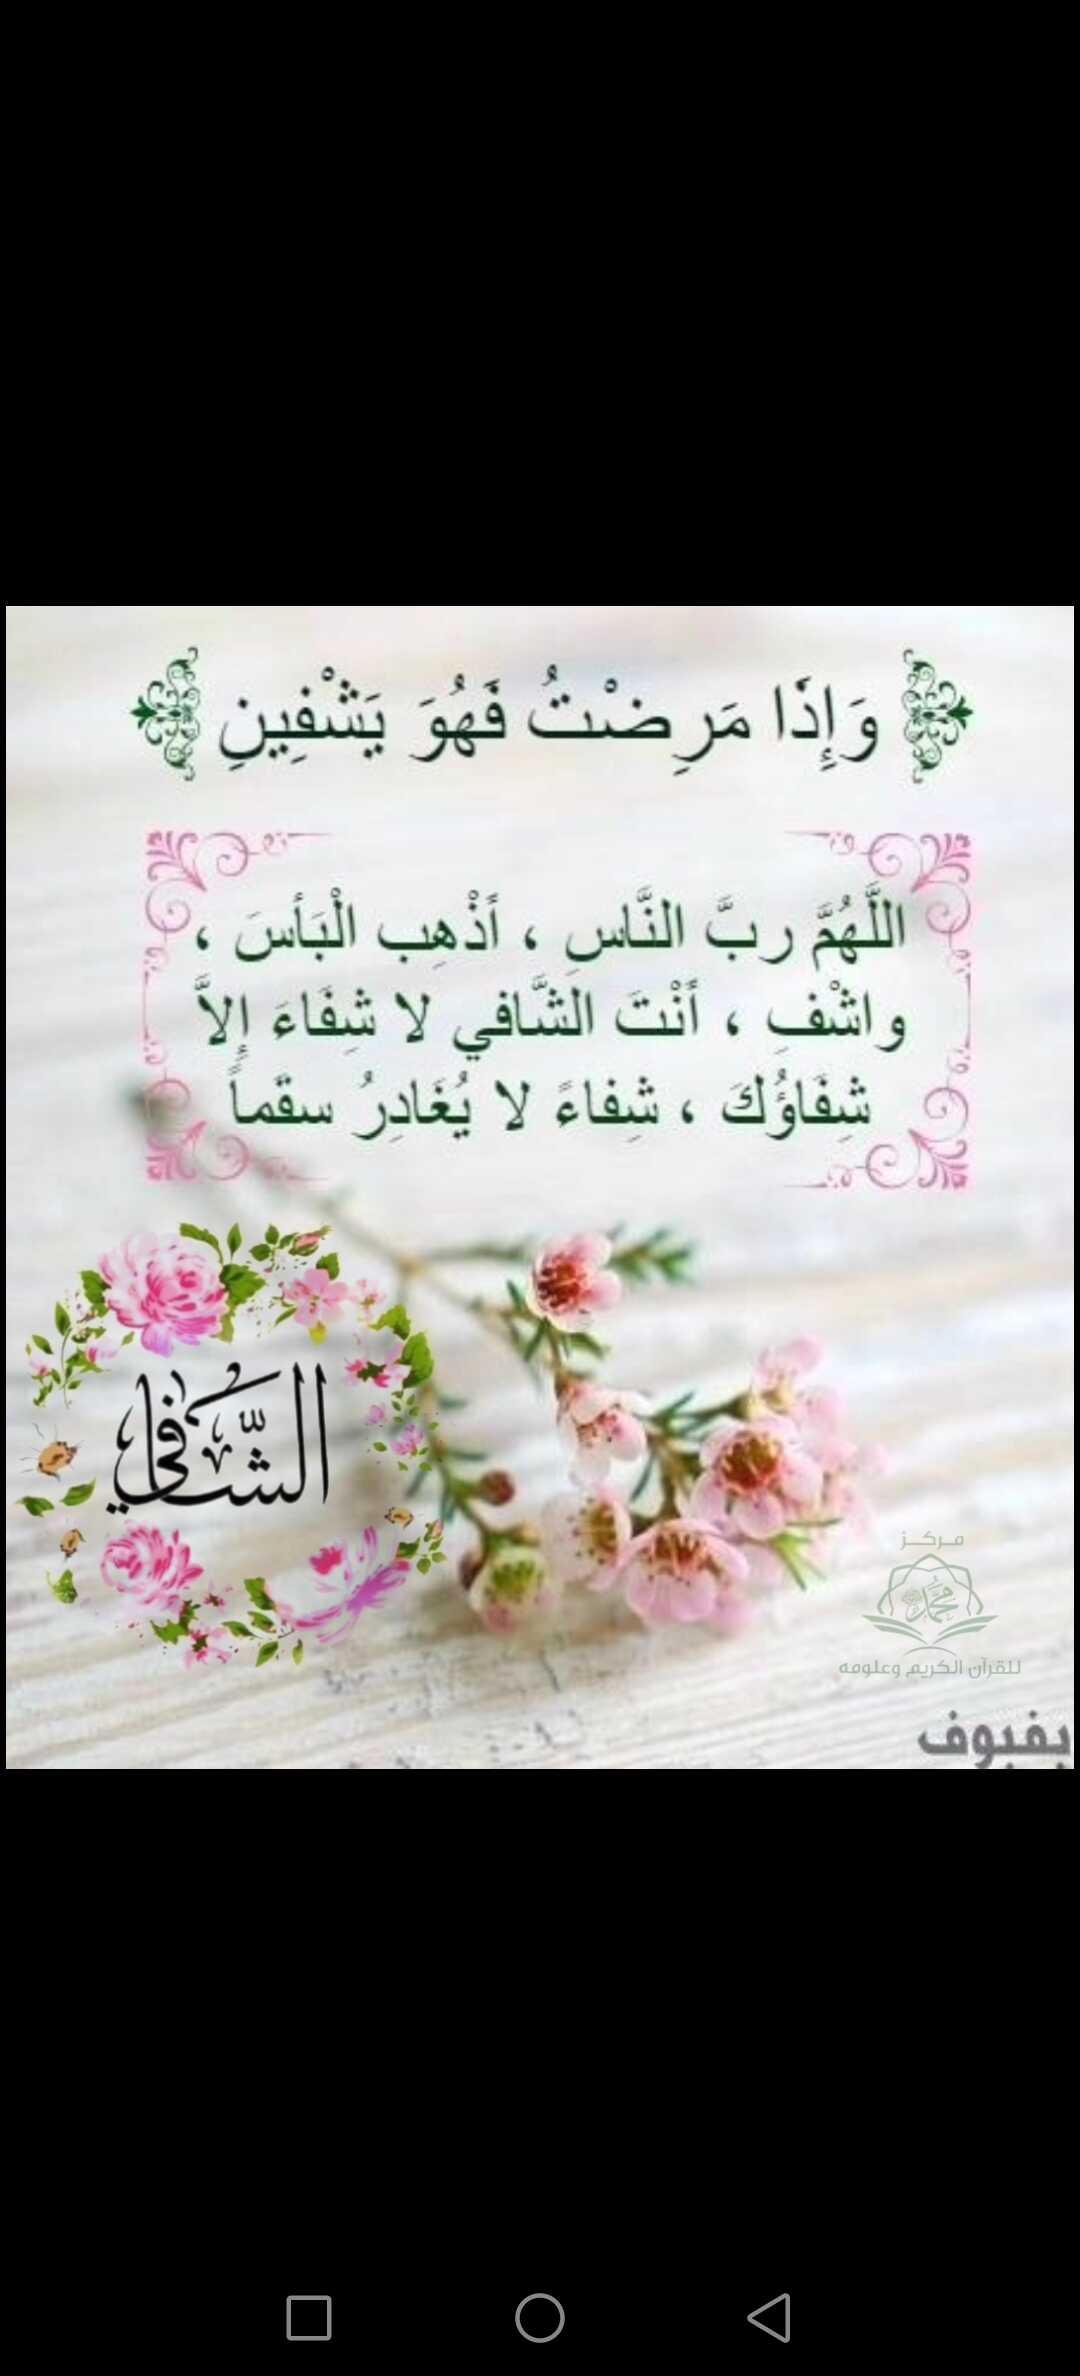 وَإِذَا مَرِضْتُ فَهُوَ يَشْفِينِ
اللَّهُمَّ ربَّ النَّاسِ ، أَذْهِب الْبَأسَ ،
واشْفِ ، أَنْتَ الشَّافي لا شِفَاءَ إِلاَّ
شِفَاؤُكَ ، شِفاءً لا يُغَادِرُ سقَماً
الشَّافي
مركز
محمد
للقرآن الكريم وعلومه
بفبوف